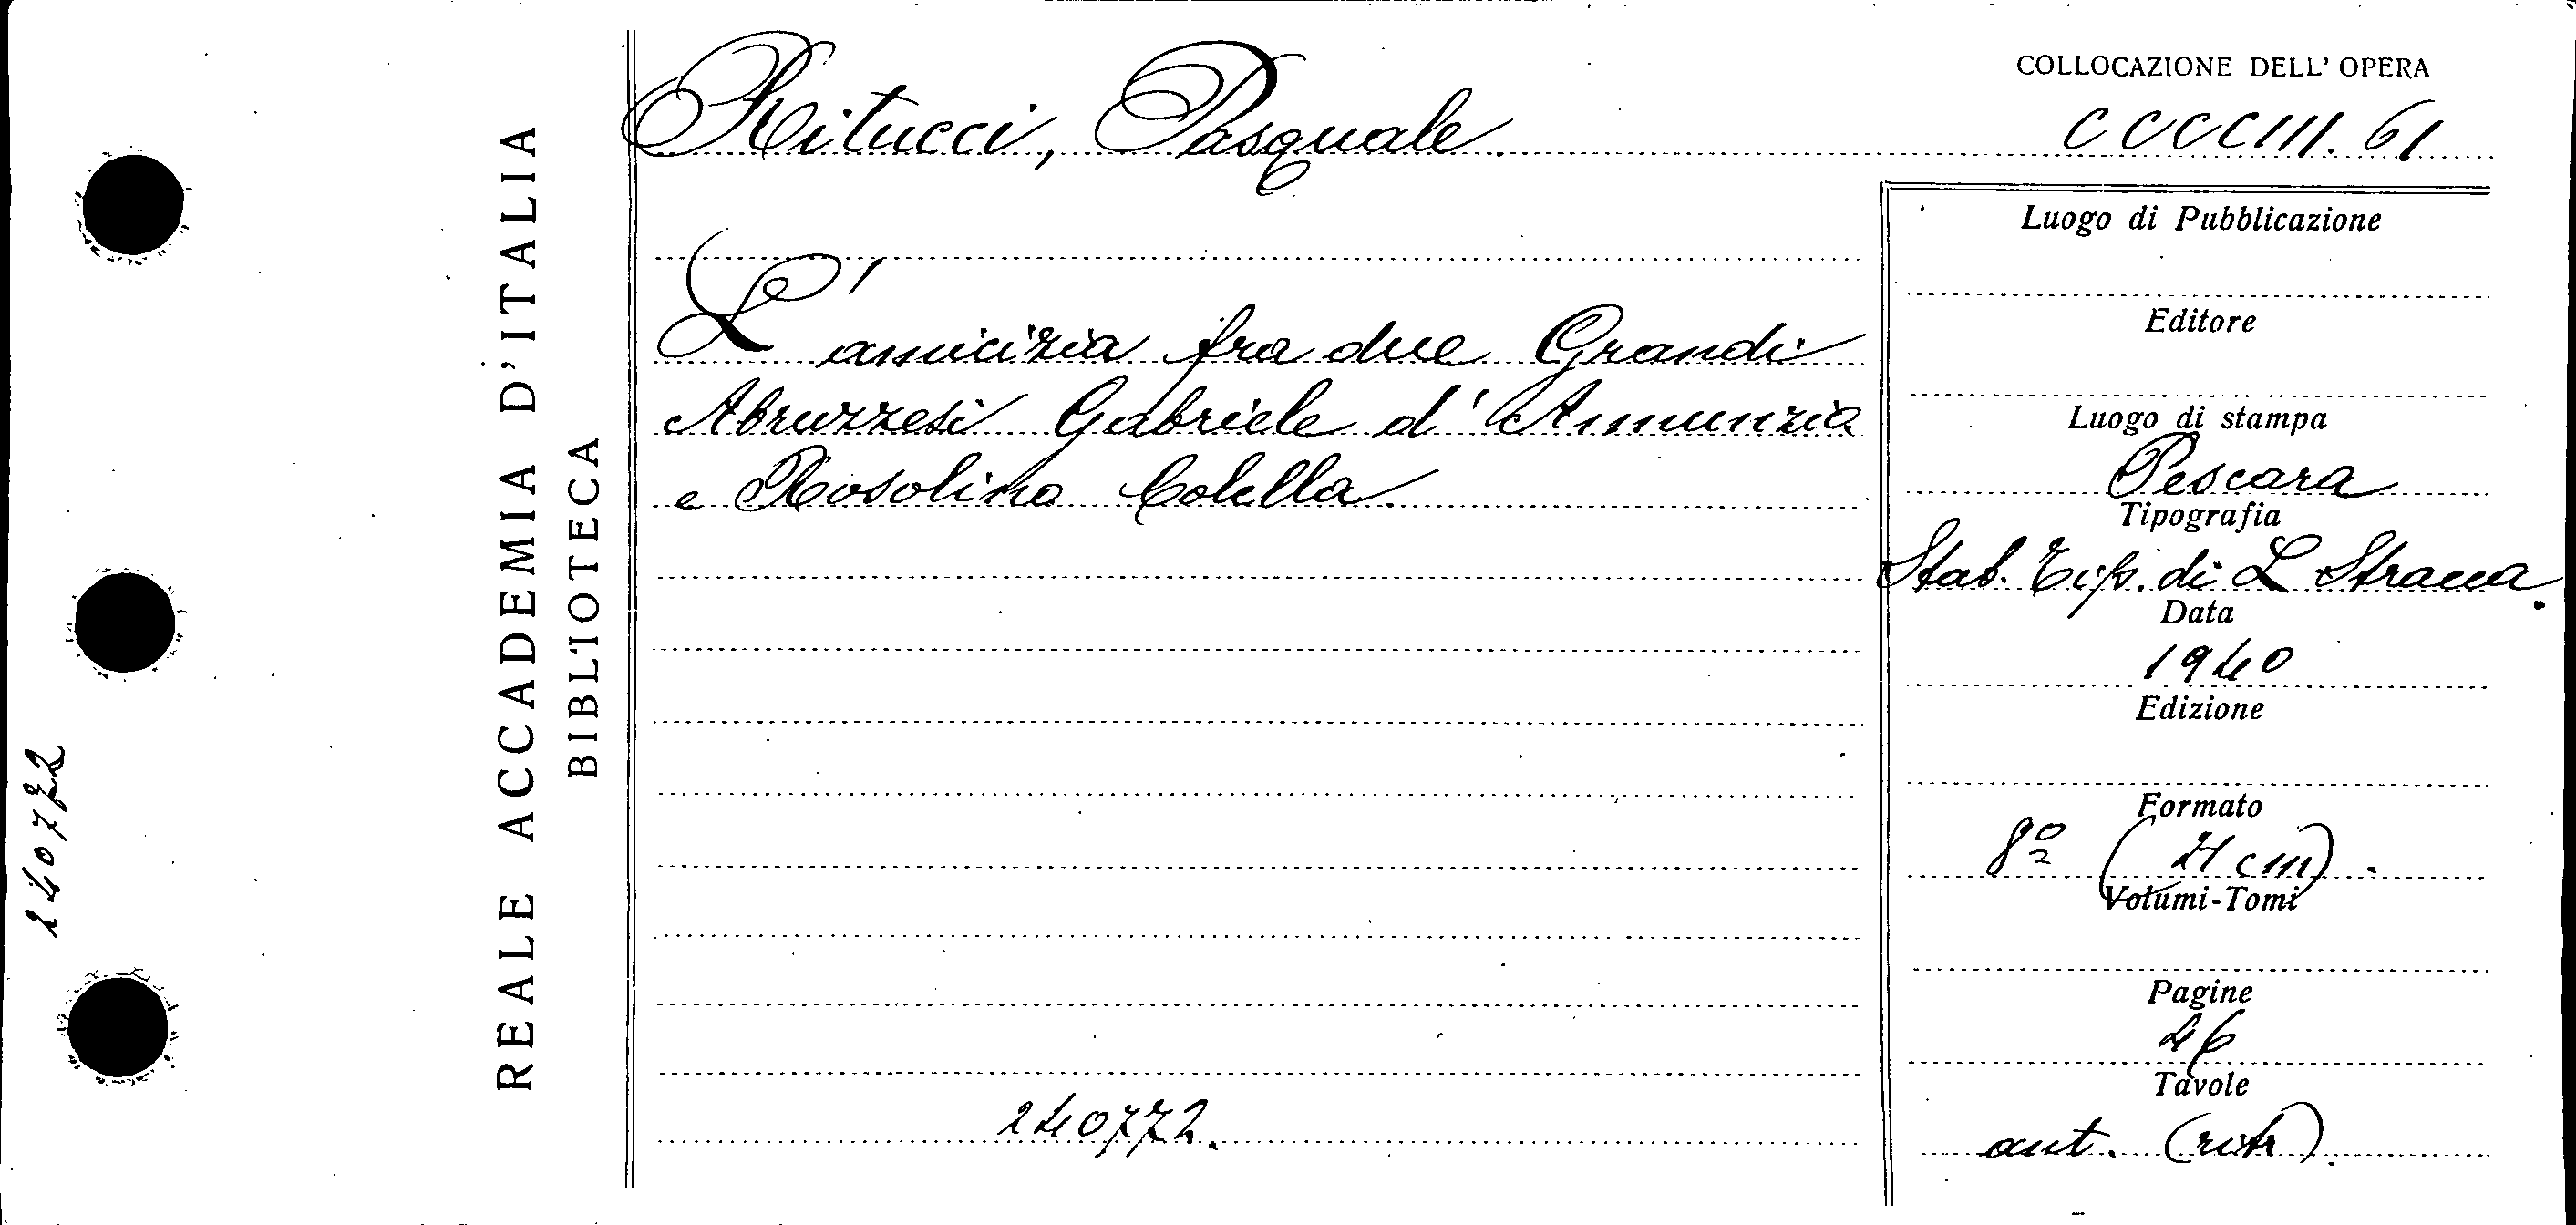 COLLOCAZIONE DELL' OPERA
Ritucci, Pasquale.
CCCCIII. 61
L'amicizia fra due Grandi
Abruzzesi Gabriele d'Annunzia
e Rosolino Colella.
Luogo di Pubblicazione
Editore
Luogo di stampa
Pescara
Tipografia
Stab. Tip. di L
Data
1940
Edizione
Formato
8º (21 cm).
Volumi-Tomi
Pagine
46
Tavole
ant. (ritr).
240772.
REALE ACCADEMIA D'ITALIA
BIBLIOTECA
240772